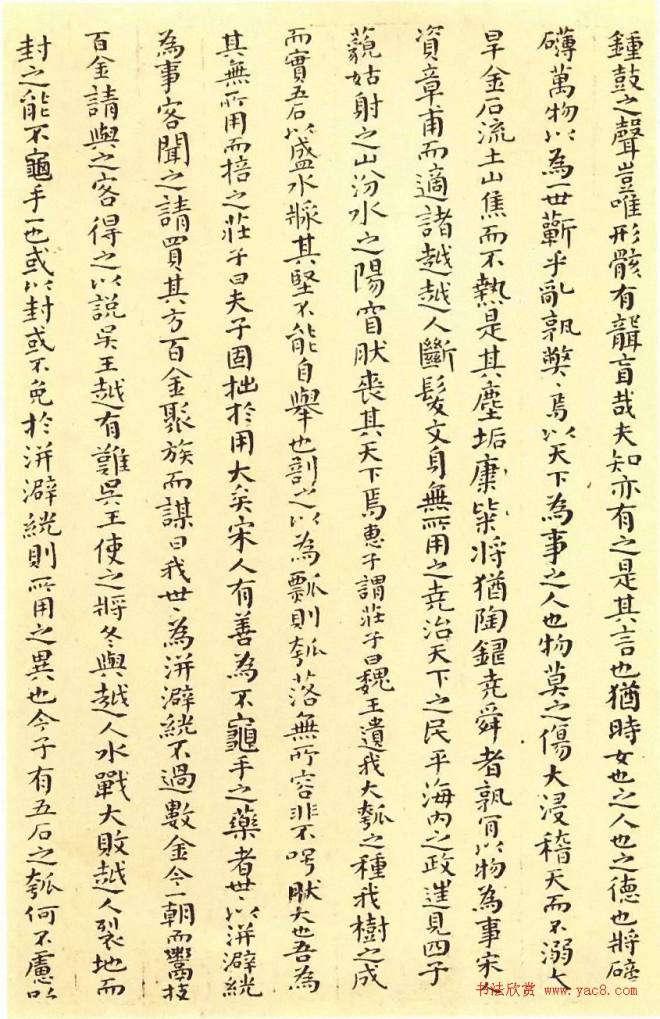 鍾鼓之聲豈唯形骸有聾盲哉夫知亦有之是其言也猶時女也之人也之德也將磅
礴萬物以為一世蘄乎亂孰弊〻焉以天下為事之人也物莫之傷大浸稽天而不溺大
旱金石流土山焦而不熱是其塵垢穅粃將猶陶鑄堯舜者孰肯以物為事宋人
資章甫而適諸越越人斷髮文身無所用之堯治天下之民平海內之政往見四子
藐姑射之山汾水之陽窅然喪其天下焉惠子謂莊子曰魏王遺我大瓠之種我樹之成
而實五石以盛水漿其堅不能自舉也剖之以為瓢則瓠落無所容非不呺然大也吾為
其無所用而掊之莊子曰夫子固拙於用大矣宋人有善為不龜手之藥者世〻以洴澼絖
為事客聞之請買其方百金聚族而謀曰我世〻為洴澼絖不過數金今一朝而鬻技
百金請與之客得之以說吳王越有難吳王使之將冬與越人水戰大敗越人裂地而
封之能不龜手一也或以封或不免於洴澼絖則所用之異也今子有五石之瓠何不慮以
书法欣赏 www.yac8.com